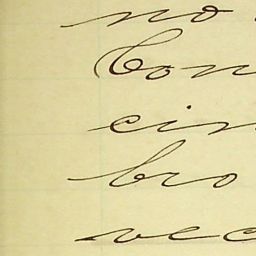 no
Con
cin
bro
vec